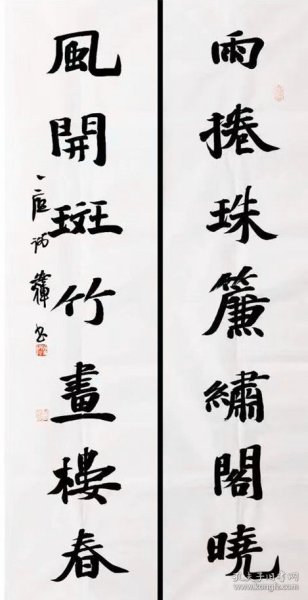 雨捲珠簾繡閣曉
風開斑竹畫樓春
孔夫子旧书网
www.kongfz.com